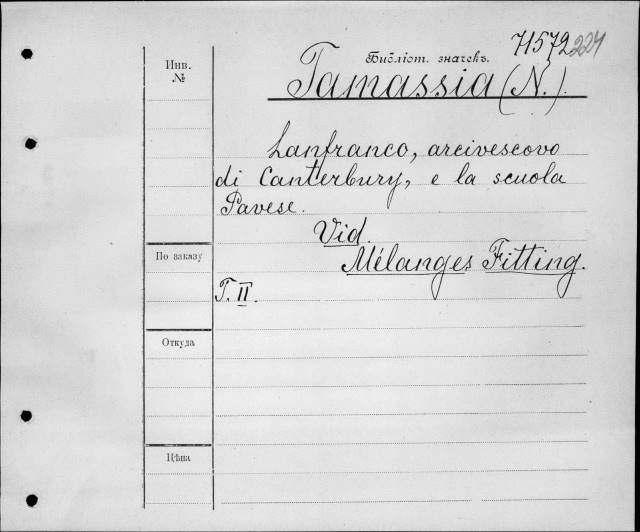 71572 224
Инв.
№
Библіот. значекъ.
Tamassia (N.).
Lanfranco, arcivescovo
di Canterbury, e la scuola
Pavese.
Vid.
Mélanges Fitting.
T. II.
По заказу
Откуда
Цѣна